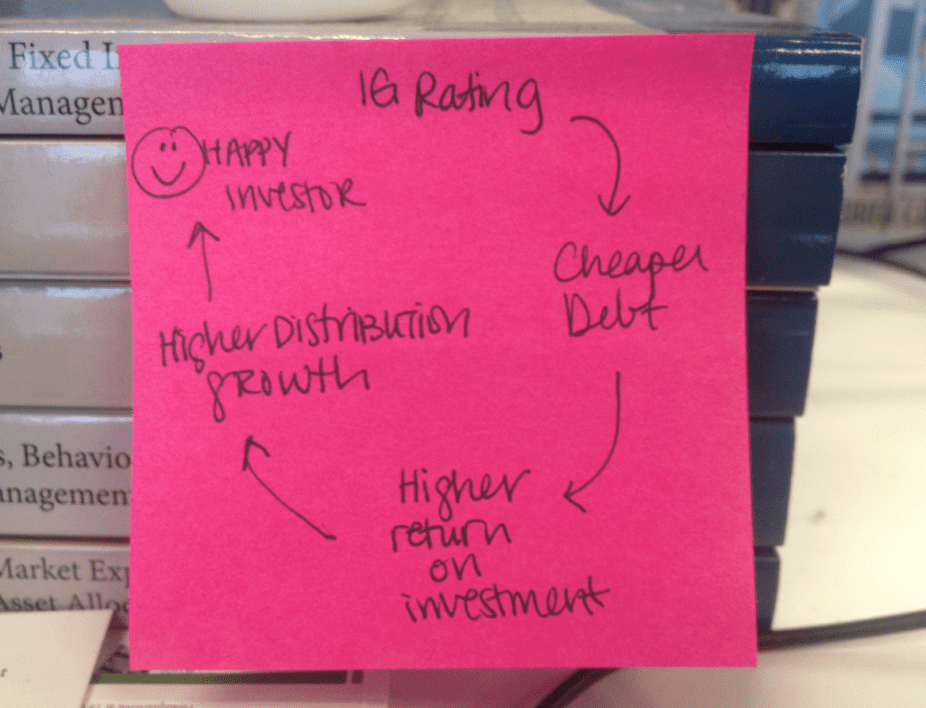 IG Rating
Cheaper
Debt
Higher
return
on
investment
Higher Distribution
growth
HAPPY
investor
Fixed
Managen
s, Behavio
nagemen
Market Exp
Asset Allo